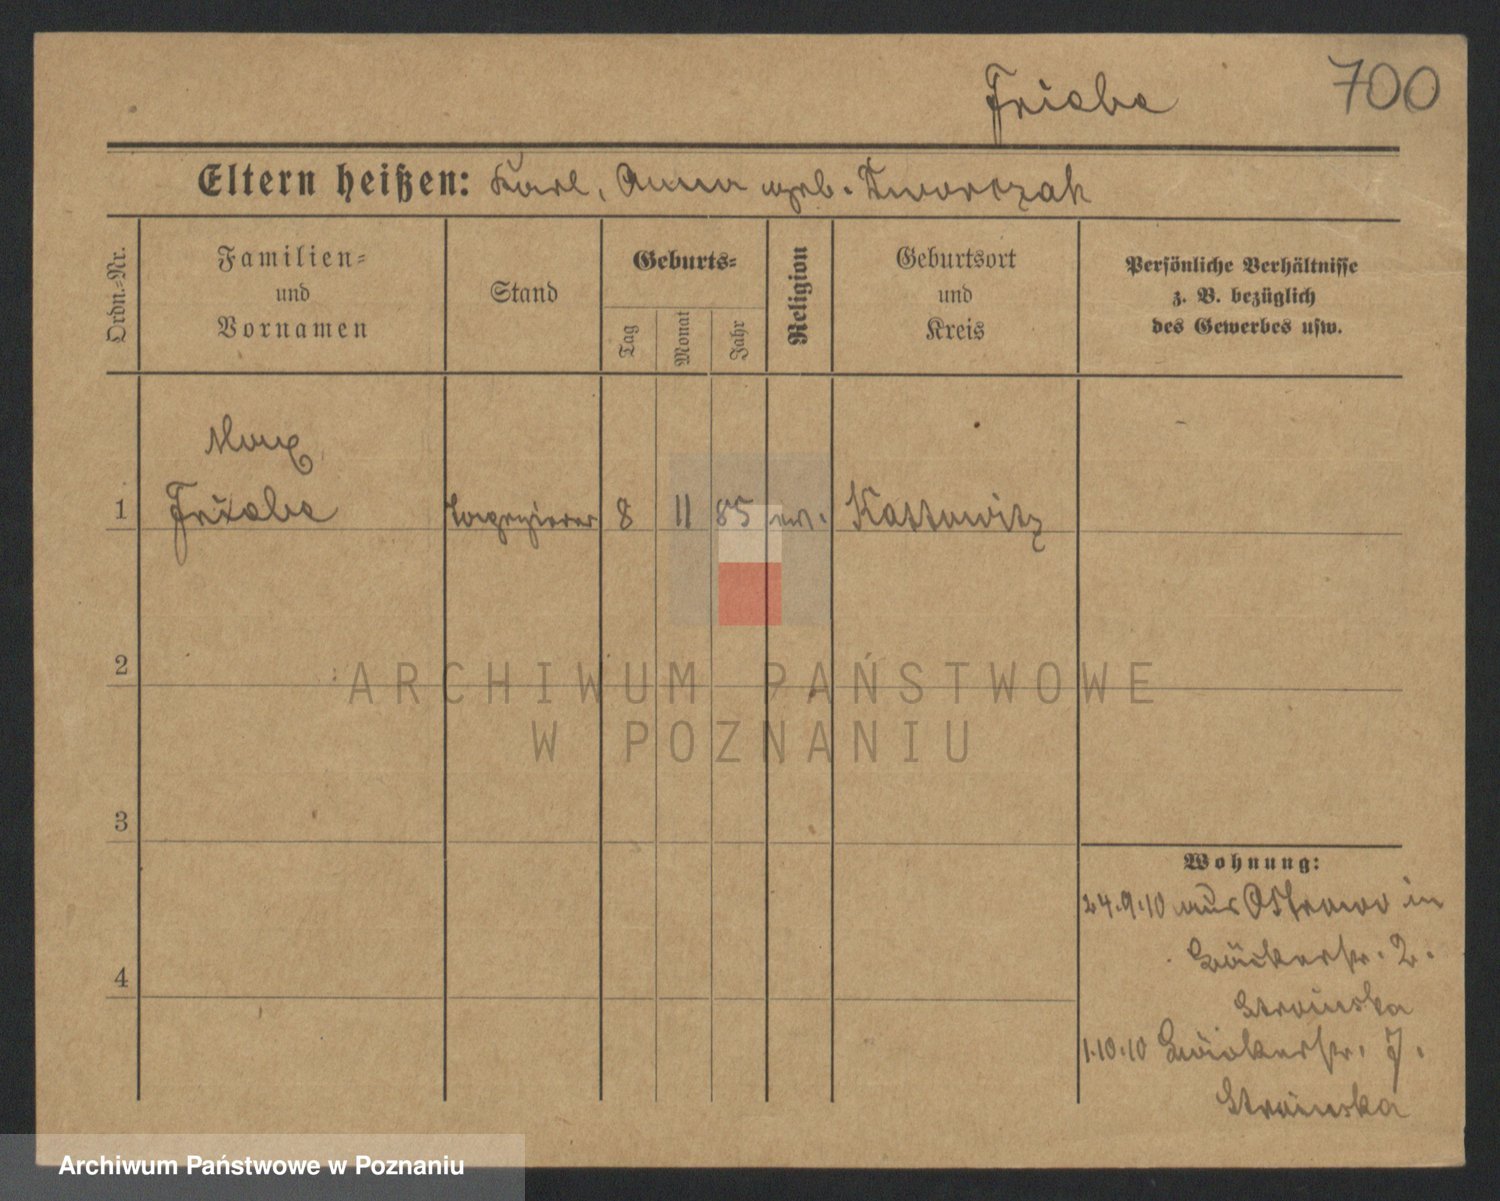 Friebe 700
Eltern heißen: Karl, Anna geb. Dworczak
Ordn.-Nr.
Familien-
und
Vornamen
Stand
Geburts-
Tag
Monat
Jahr
Religion
Geburtsort
und
Kreis
Persönliche Verhältnisse
z. B. bezüglich
des Gewerbes usw.
Max
1 Friebe Tapezierer 8 11 85 ev. Kattowitz
2
3
4
Wohnung:
24.9.10 aus Ostrowo in
Bäckerstr. 2.
Stroinska
1.10.10 Bäckerstr. 7.
Stroinska
ARCHIWUM PAŃSTWOWE
W POZNANIU
Archiwum Państwowe w Poznaniu